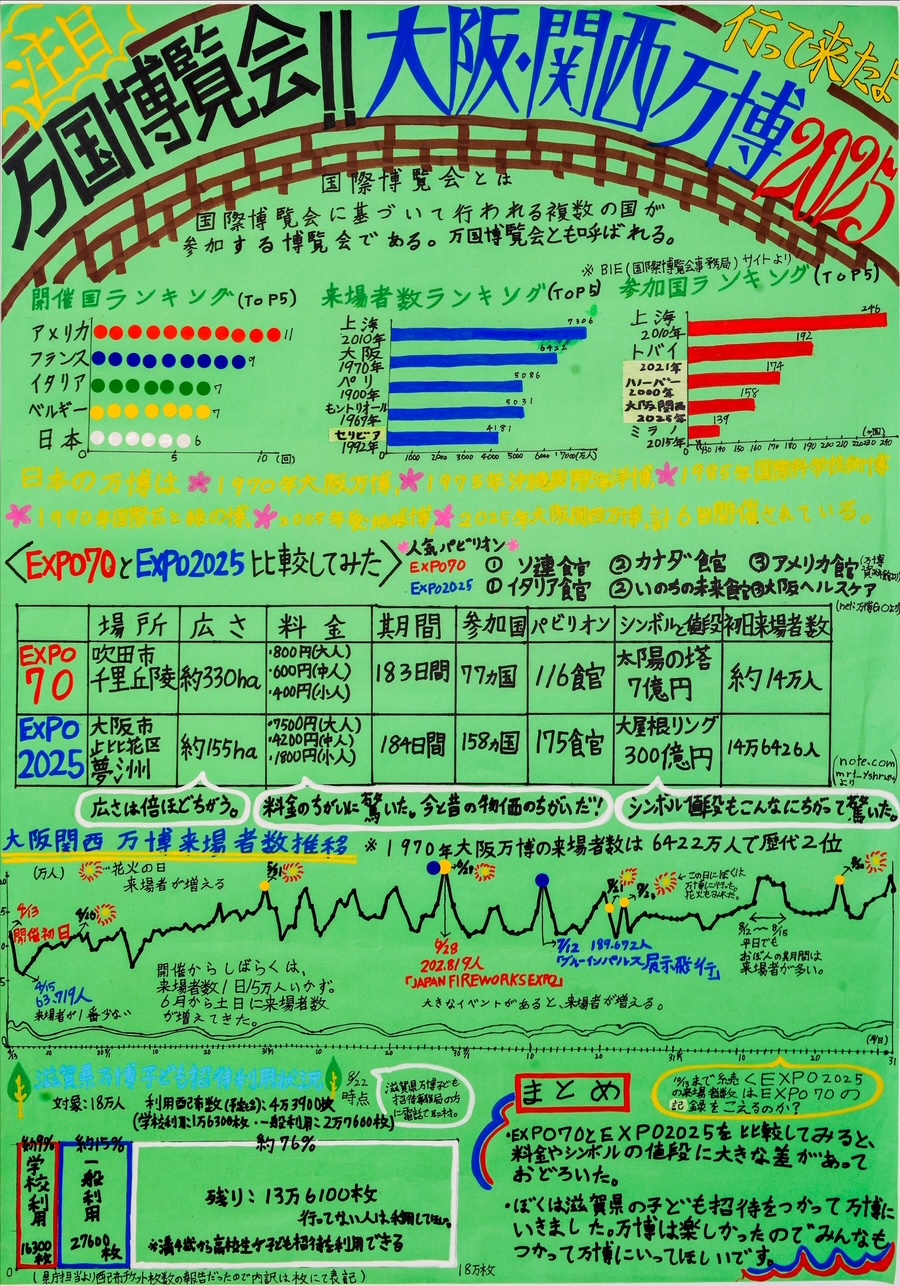 注目
万国博覧会!!
大阪・関西万博
2025
行って来たよ
国際博覧会とは
国際博覧会に基づいて行われる複数の国が
参加する博覧会である。万国博覧会とも呼ばれる。
※BIE(国際博覧会事務局)サイトより
開催国ランキング(TOP5)
アメリカ 11
フランス 9
イタリア 7
ベルギー 7
日本 6
0 5 10 (回)
来場者数ランキング(TOP5)
上海 2010年 7306
大阪 1970年 6422
パリ 1900年 5086
モントリオール 1967年 5031
セリビア 1992年 4181
1000 2000 3000 4000 5000 6000 7000(万人)
参加国ランキング(TOP5)
上海 2010年 246
トバイ 2021年 192
ハノーバー 2000年 174
大阪関西 2025年 158
ミラノ 2015年 139
日本の万博は 1970年大阪万博、1975年沖縄国際海洋博、1985年国際科学技術博
1990年国際花と緑の博、2005年愛・地球博、2025年大阪関西万博、計6回開催されている。
〈EXPO70とEXPO2025比較してみた〉
人気パビリオン
EXPO70 ①ソ連食官 ②カナダ食官 ③アメリカ食官
EXPO2025 ①イタリア食官 ②いのちの未来食官③大阪ヘルスケア
場所 広さ 料金 期間 参加国 パビリオン シンボルと値段 初日来場者数
EXPO70 吹田市千里丘陵 約330ha ・800円(大人)・600円(中人)・400円(小人) 183日間 77カ国 116食官 太陽の塔7億円 約14万人
EXPO2025 大阪市此花区夢洲 約155ha ・7500円(大人)・4200円(中人)・1800円(小人) 184日間 158カ国 175食官 大屋根リング300億円 14万6426人
広さは倍ほどちがう。
料金のちがいに驚いた。今と昔の物価のちがいだ!
シンボル値段もこんなにちがって驚いた。
大阪関西万博来場者数推移
※1970年大阪万博の来場者数は6422万人で歴代2位
(万人)
花火の日
来場者が増える
4/13
開催初日
4/15
63.719人
来場者が1番少ない
開催からしばらくは、
来場者数1日15万人いかず。
6月から土日に来場者数
が増えてきた。
6/28
202.819人
「JAPAN FIREWORKS EXPO」
7/12 189.672人
「ブルーインパルス展示飛行」
大きなイベントがあると、来場者が増える。
←この日にぼくは
万博に行った。
花火もみれた。
8/2〜8/15
平日でも
おぼんの期間は
来場者が多い。
滋賀県万博子ども招待利用状況
8/22
時点
滋賀県万博子ども
招待事務局の方
に電話で取材。
対象:18万人
利用配布数(手続き):4万3900枚
(学校利用:1万6300枚・一般利用:2万7600枚)
約9%
学校利用
16300枚
約15%
一般利用
27600枚
約76%
残り:13万6100枚
行ってない人は利用してほしい。
※満4歳から高校生が子ども招待を利用できる
0
18万枚
まとめ
10/13まで続くEXPO2025
の来場者数はEXPO70の
記録をこえるのか?
・EXPO70とEXPO2025を比較してみると、
料金やシンボルの値段に大きな差があって
おどろいた。
・ぼくは滋賀県の子ども招待をつかって万博に
いきました。万博は楽しかったのでみんなも
つかって万博にいってほしいです。